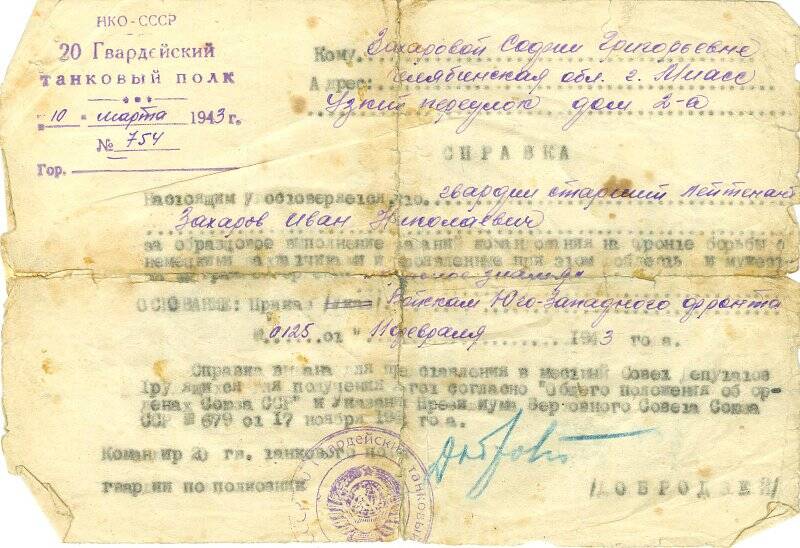 НКО-СССР
20 Гвардейский
ТАНКОВЫЙ ПОЛК
"10" марта 1943 г.
№ 754
Гор.
Кому: Захаровой Софии Григорьевне
Адрес: Челябинская обл. г. Миасс
Узкий переулок дом 2-а
СПРАВКА
Настоящим удостоверяется, что гвардии старший лейтенант
Захаров Иван Николаевич
за образцовое выполнение заданий командования на фронте борьбы с
немецкими захватчиками и проявленные при этом доблесть и мужест
Красное знамя
ОСНОВАНИЕ: Приказ Войскам Юго-Западного фронта
№ 0125 от "11 февраля 1943 года.
Справка выдана для представления в местный Совет депутатов
Трудящихся для получения льгот согласно "Общего положения об ор-
денах Союза ССР" и Указа Президиума Верховного Совета Союза
ССР № 679 от 17 ноября года.
Командир 20 гв. танкового полка
гвардии подполковник /ДОБРОДЗЕЙ/
Гвардейский танковый